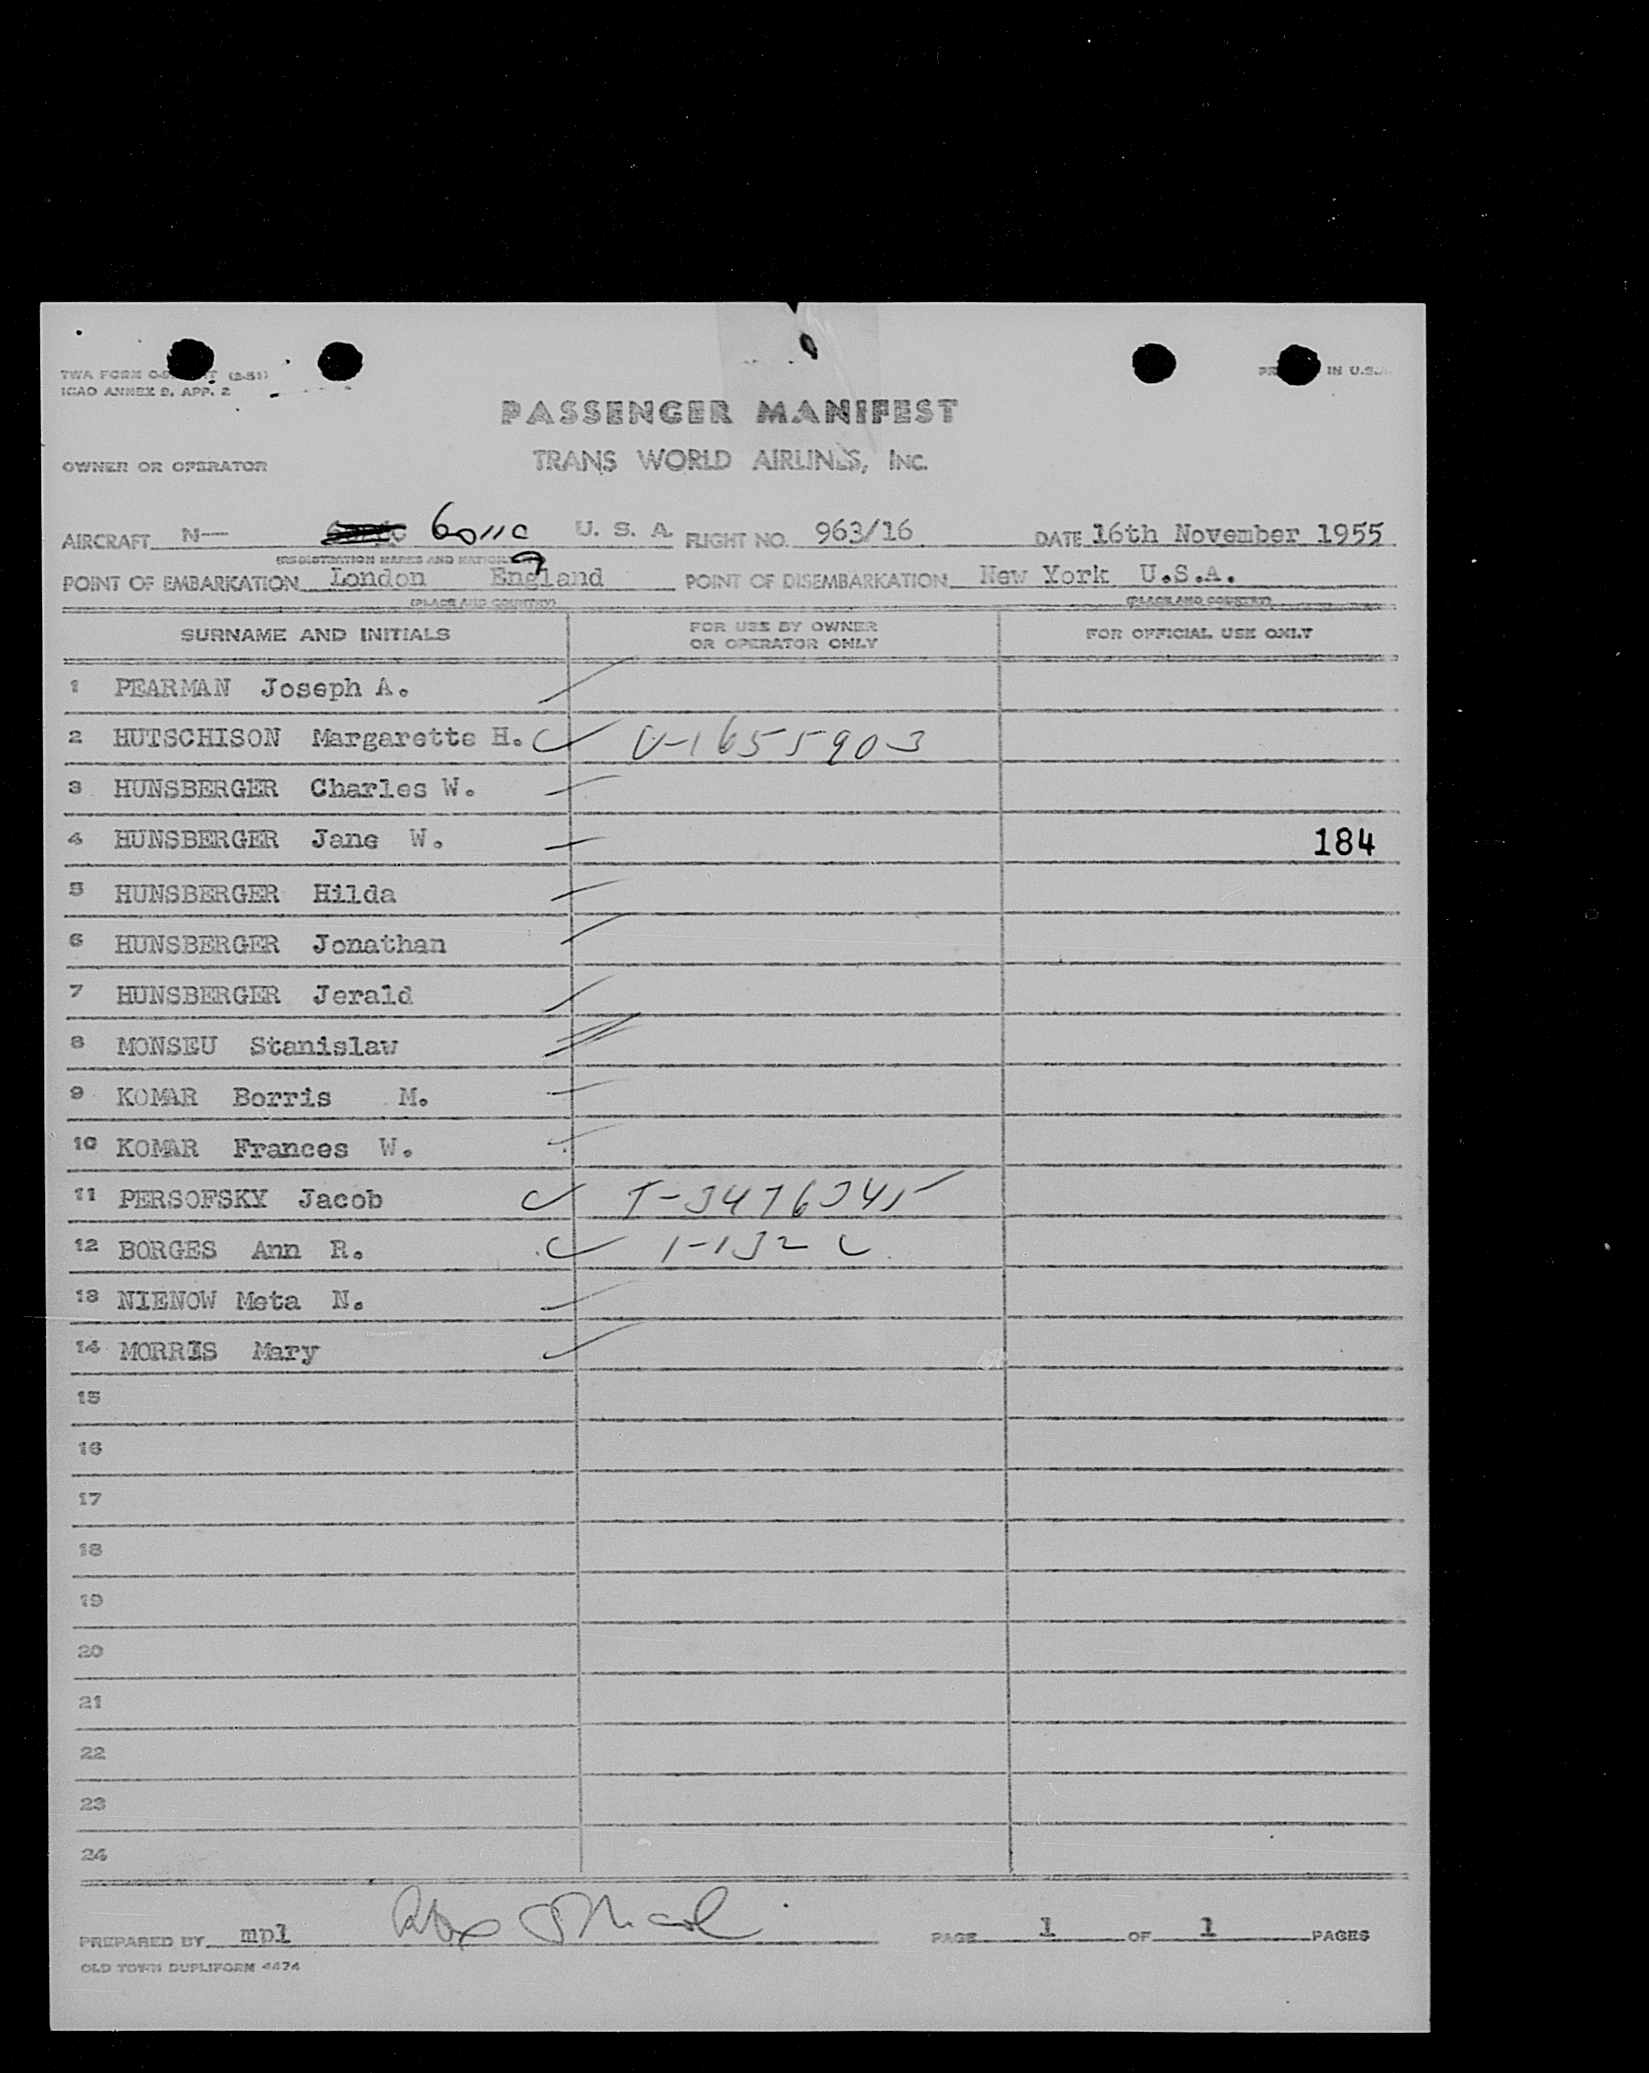 TWA FORM (2-51)
ICAO ANNEX 9, APP. 2
IN U.S.A.
PASSENGER MANIFEST
OWNER OR OPERATOR TRANS WORLD AIRLINES, INC.
AIRCRAFT N— 6011C U. S. A. FLIGHT NO. 963/16 DATE 16th November 1955
(REGISTRATION MARKS AND
POINT OF EMBARKATION London England POINT OF DISEMBARKATION New York U.S.A.
(PLACE AND COUNTRY) (PLACE AND COUNTRY)
SURNAME AND INITIALS FOR USE BY OWNER OR OPERATOR ONLY FOR OFFICIAL USE ONLY
1 PEARMAN Joseph A.
2 HUTSCHISON Margarette H. V-1655903
3 HUNSBERGER Charles W.
4 HUNSBERGER Jane W. 184
5 HUNSBERGER Hilda
6 HUNSBERGER Jonathan
7 HUNSBERGER Jerald
8 MONSEU Stanislaw
9 KOMAR Borris M.
10 KOMAR Frances W.
11 PERSOFSKY Jacob
12 BORGES Ann R.
13 NIENOW Meta N.
14 MORRIS Mary
15
16
17
18
19
20
21
22
23
24
PREPARED BY mpl PAGE 1 OF 1 PAGES
OLD TOWN DUPLIFORM 4474